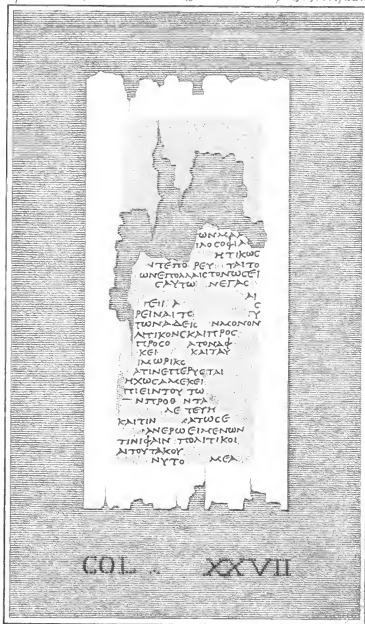 ΩΝΚΑΑ
ΙΛΟϹΟΦΙΑϹ
ΗΤΙΚΩϹ
ΝΤΕΠΟ ΡΕΥ ΤΑΙΤΟ
ΩΝΕΠΟΛΛΑΙϹΤΟΝΩϹΕΙ
ϹΑΥΤΩ ΝΕΓΑϹ
ΑΙ
ΤΕΙΙ Α Ϲ
ΡΕΙΝΑΙΤϹ Υ
ΤΩΝΑΔΕΙϹ ΝΑΚΟΝΟΝ
ΛΙΤΙΚΟΝϹΚΑΙΠΡΟϹ
ΠΡΟϹΟ ΑΤΟΝΑΦ
ΚΕΙ ΚΑΙΤΑΥ
ΙΑΩΡΙΚϹ
ΑΤΙΝΕΠΕΡΥϹΤΑΙ
ΗΧΩϹΑΜΕΚΕΙ
ΠΙΕΙΝΤΟΥ ΤΩ
ΝΠΡΟΘ ΝΤΑ
ΛΕ ΤΕΥΗ
ΚΑΙΤΙΝ ΚΑΤΩϹΕ
ΑΝΕΡΩΕΙΜΕΝΩΝ
ΤΙΝΙΦΑΙΝ ΠΟΛΙΤΙΚΟΙ
ΛΙΤΟΥΤΑΚΟΥ
ΝΥΤΟ ΜΕΑ
COL. XXVII